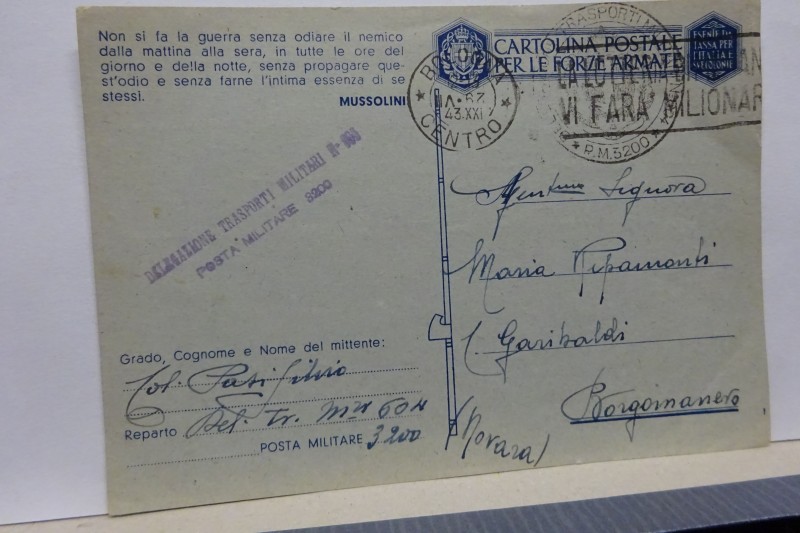 Non si fa la guerra senza odiare il nemico
dalla mattina alla sera, in tutte le ore del
giorno e della notte, senza propagare que-
st'odio e senza farne l'intima essenza di se
stessi.
MUSSOLINI
CARTOLINA POSTALE
PER LE FORZE ARMATE
ESENTE DA
TASSA PER
L'ITALIA E
TRASPORTI
P.M. 3200
BOLOGNA
43.XXI
CENTRO
LA LOTTERIA
VI FARA' MILIONAR
DELEGAZIONE TRASPORTI MILITARI N°
POSTA MILITARE 3200
Signora
Maria Ripamonti
Garibaldi
Borgomanero
(Novara)
Grado, Cognome e Nome del mittente:
Col. Silvio
Reparto Del. Tr. Mri
POSTA MILITARE 3200